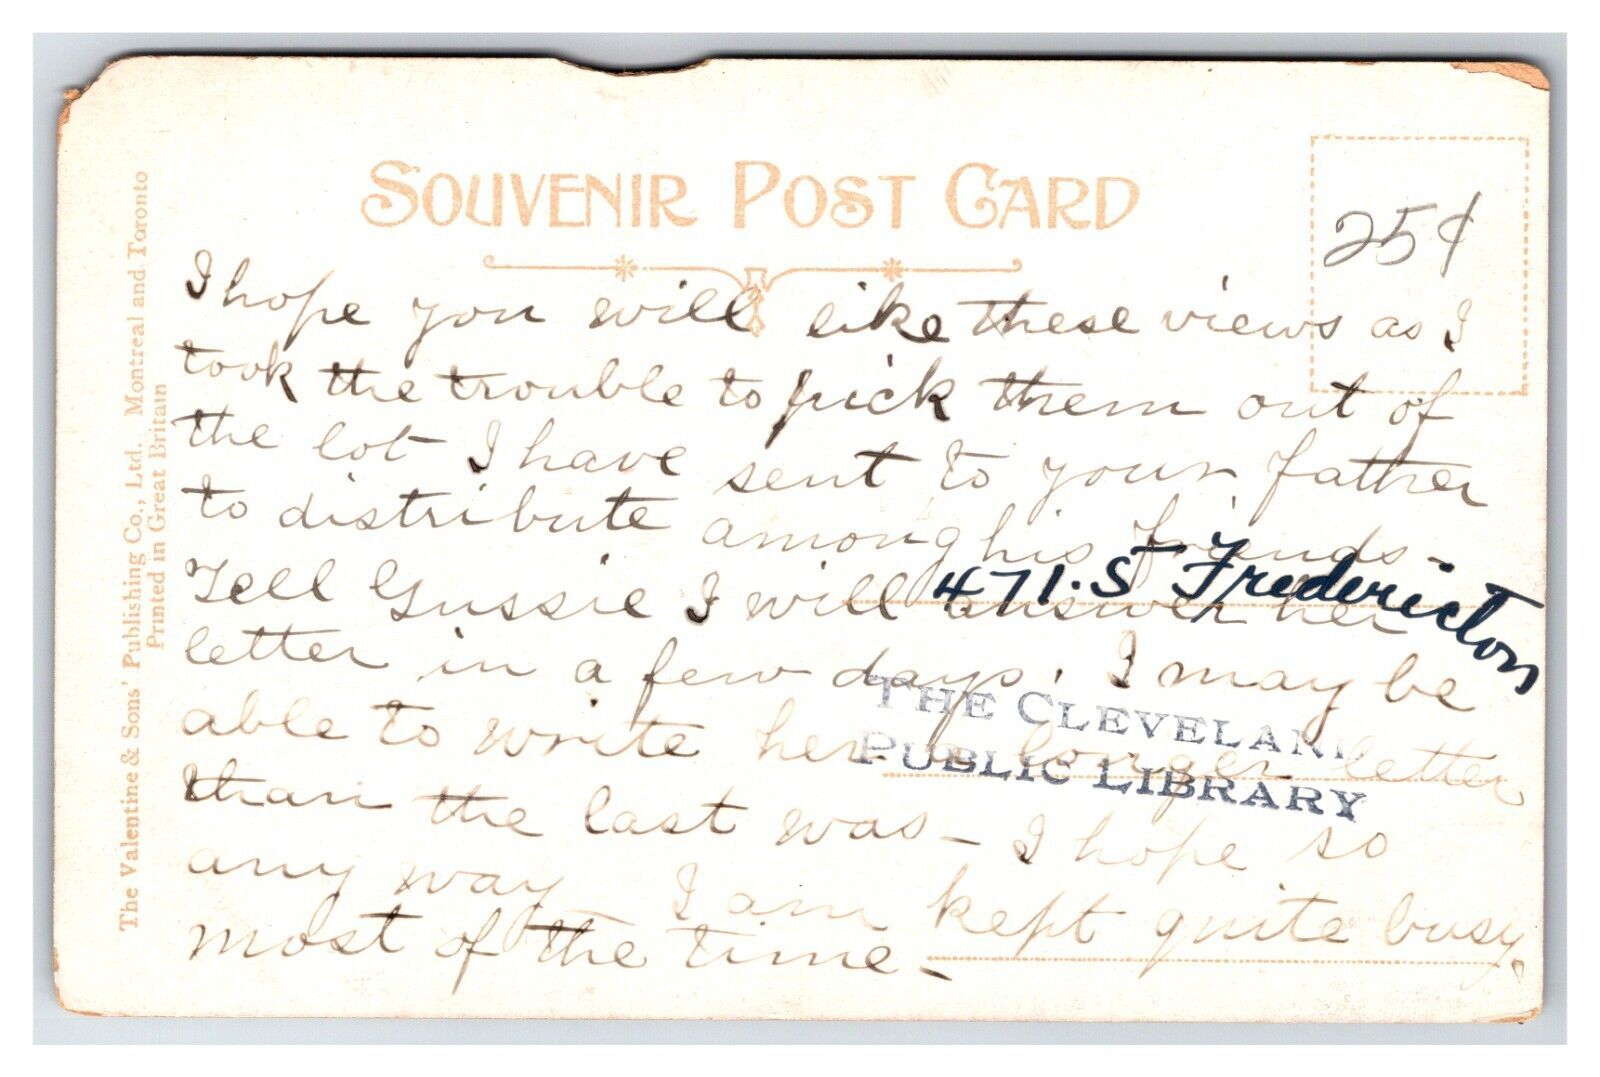 SOUVENIR POST CARD
25¢
The Valentine & Sons' Publishing Co., Ltd. Montreal and Toronto
Printed in Great Britain
I hope you will like these views as I
took the trouble to pick them out of
the lot I have sent to your father
to distribute among his friends-
Tell Gussie I will answer her
letter in a few days. I may be
able to write her a longer letter
than the last was - I hope so
any way I am kept quite busy,
most of the time -
471.5 Fredericton
THE CLEVELAND
PUBLIC LIBRARY